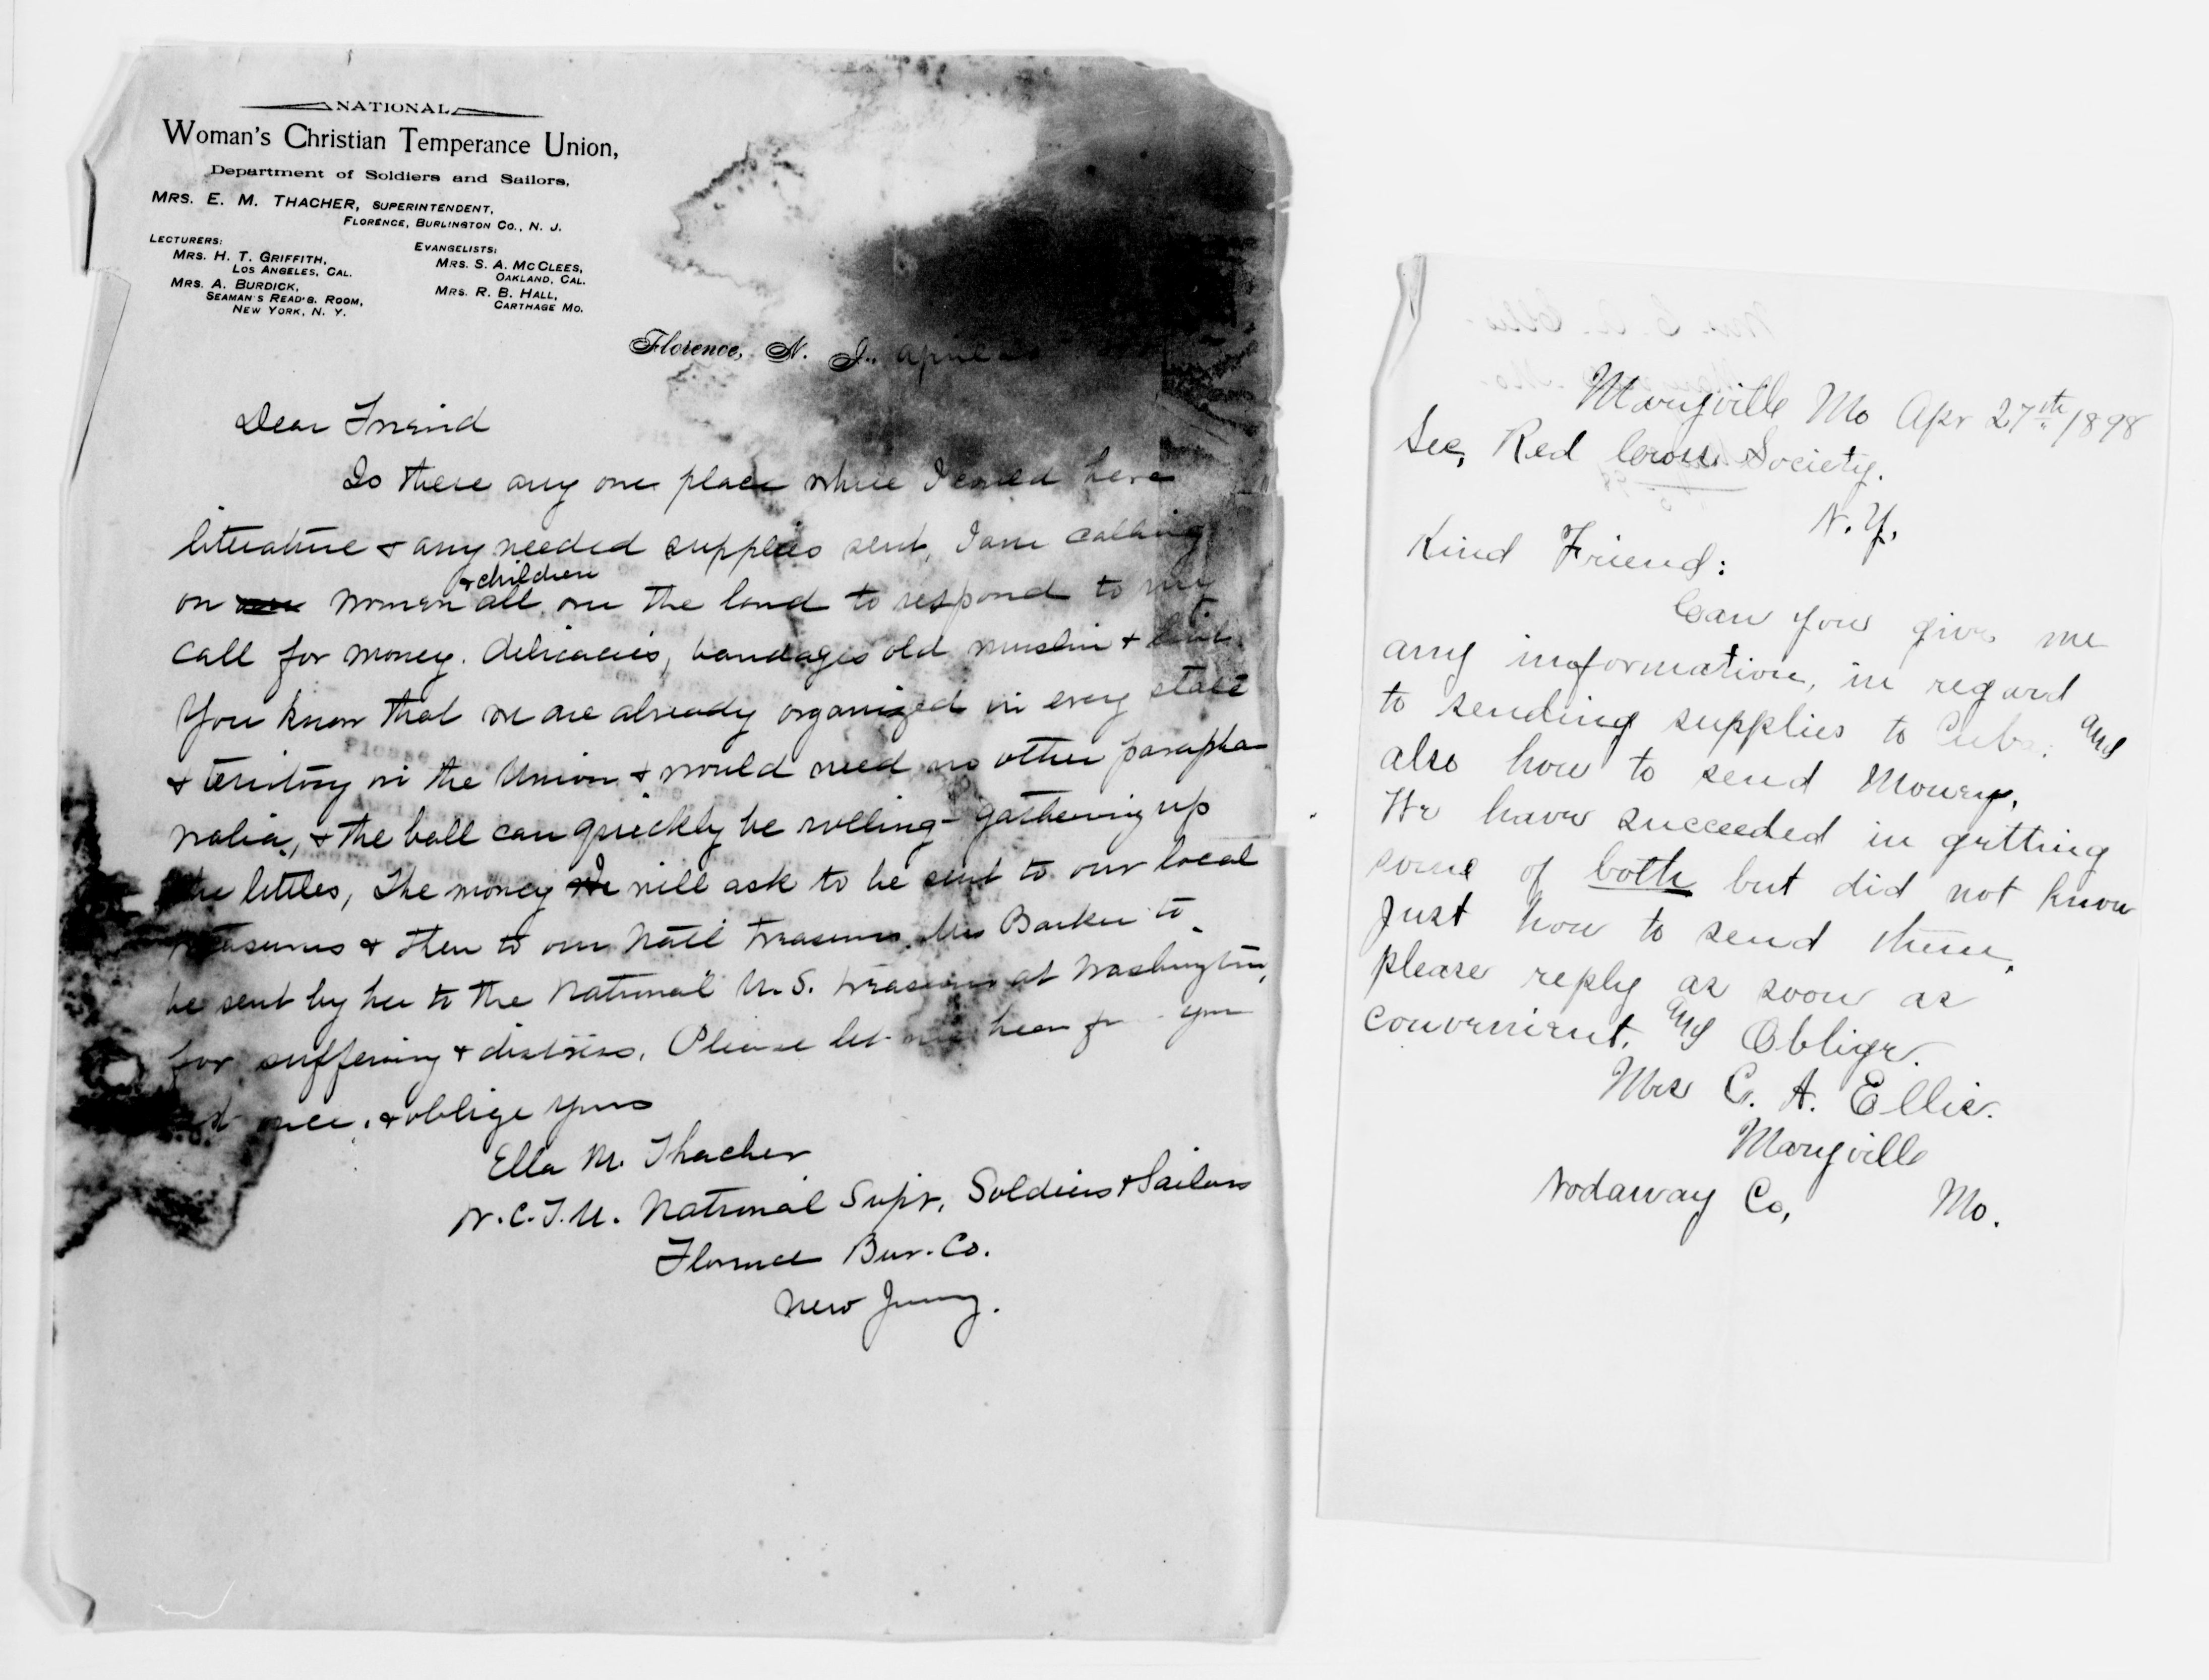 NATIONAL
Woman's Christian Temperance Union,
Department of Soldiers and Sailors,
MRS. E. M. THACHER, SUPERINTENDENT,
FLORENCE, BURLINGTON CO., N. J.
LECTURERS:
MRS. H. T. GRIFFITH,
LOS ANGELES, CAL.
MRS. A. BURDICK,
SEAMAN'S READ'G. ROOM,
NEW YORK, N. Y.
EVANGELISTS:
MRS. S. A. MCCLEES,
OAKLAND, CAL.
MRS. R. B. HALL,
CARTHAGE MO.
Florence, N. J., April
Dear Friend
Is there any one place where I could have
literature & any needed supplies sent, I am calling
on women & children all over the land to respond to my
call for money. delicacies, bandages old muslin &
You know that we are already organized in every state
& territory in the Union & would need no other parapha
nalia, & the ball can quickly be rolling - gathering up
the littles, The money will ask to be sent to our local
treasurers & then to our Natl treasurer. Mrs Barker to
be sent by her to the National U.S. treasurer at Washington,
for suffering & distress. Please let me hear from you
at once. & oblige yours
Ella M. Thacher
W.C.T.U. National Supt. Soldiers & Sailors
Florence Bur. Co.
New Jersey.
Maryville Mo Apr 27th 1898
Sec, Red Cross Society.
N. Y.
Kind Friend:
Can you give me
any information, in regard
to sending supplies to Cuba. and
also how to send Money.
We have succeeded in getting
some of both but did not know
just how to send them.
please reply as soon as
convenient. and Oblige.
Mrs C. A. Ellis.
Maryville
Nodaway Co, Mo.